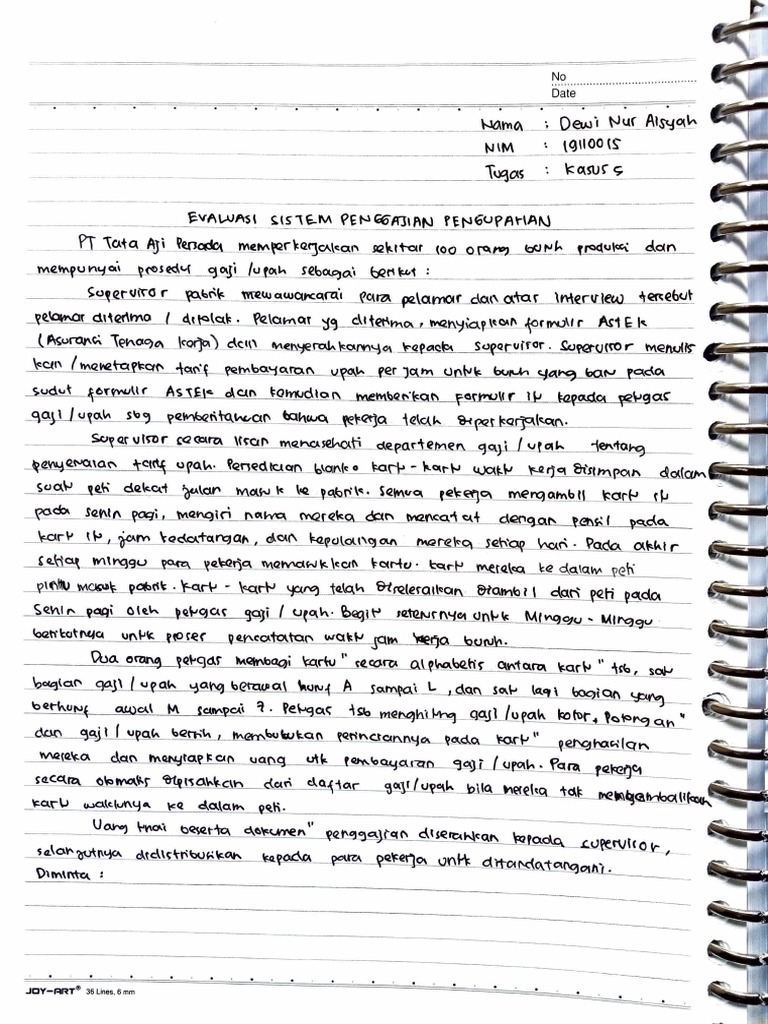 No
Date
Nama : Dewi Nur Aisyah
NIM : 19110015
Tugas : Kasus 5
EVALUASI SISTEM PENGGAJIAN PENGUPAHAN
PT Tata Aji Persada memperkerjakan sekitar 100 orang buruh produksi dan
mempunyai prosedur gaji /upah sebagai berikut :
Supervisor pabrik mewawancarai para pelamar dan atas interview tersebut
pelamar diterima / ditolak. Pelamar yg diterima, menyiapkan formulir ASTEK
(Asuransi Tenaga Kerja) dan menyerahkannya kepada supervisor. Supervisor menulis
kan /menetapkan tarif pembayaran upah per jam untuk buruh yang baru pada
sudut formulir ASTEK dan kemudian memberikan formulir itu kepada petugas
gaji /upah sbg pemberitahuan bahwa pekerja telah diperkerjakan.
Supervisor secara lisan menasehati departemen gaji /upah tentang
penyesuaian tarif upah. Persediaan blanko kartu - kartu waktu kerja disimpan dalam
suatu peti dekat jalan masuk ke pabrik. Semua pekerja mengambil kartu itu
pada senin pagi, mengisi nama mereka dan mencatat dengan pensil pada
kartu itu, jam kedatangan, dan kepulangan mereka setiap hari. Pada akhir
setiap minggu para pekerja memasukkan kartu. kartu mereka ke dalam peti
pintu masuk pabrik. Kartu - kartu yang telah diselesaikan diambil dari peti pada
Senin pagi oleh petugas gaji / upah. Begitu seterusnya untuk Minggu - Minggu
berikutnya untuk proses pencatatan waktu jam kerja buruh.
Dua orang petugas membagi kartu" secara alphabetis antara kartu" tsb, satu
bagian gaji / upah yang berawal huruf A sampai L, dan satu lagi bagian yang
berhuruf awal M sampai Z. Petugas tsb menghitung gaji /upah kotor, Potongan"
dan gaji / upah bersih, membukukan perinciannya pada kartu" penghasilan
mereka dan menyiapkan uang utk pembayaran gaji /upah. Para pekerja
secara otomatis dipisahkan dari daftar gaji/upah bila mereka tak mengembalikan
kartu waktunya ke dalam peti.
Uang tunai beserta dokumen" penggajian diserahkan kepada supervisor,
selanjutnya didistribusikan kepada para pekerja untuk ditandatangani.
Diminta :
JOY-ART® 36 Lines, 6 mm